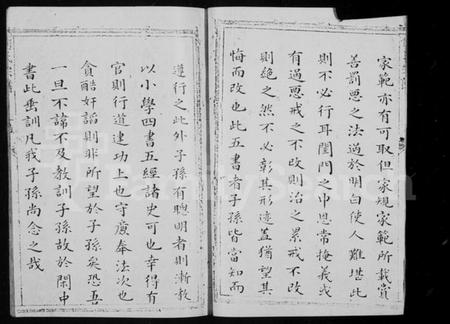 家範亦有可取但家規家範所載賞
善罰惡之法過於明白使人難堪此
則不必行耳閨門之中恩常掩義或
有過惡戒之不改則治之累戒不改
則絕之然不必彰其形迹蓋猶望其
悔而改也此五書者子孫皆當知而
遵行之此外子孫有聰明者則漸教
以小學四書五經諸史可也幸得有
官則行道建功上也守廉奉法次也
貪酷奸諂則非所望於子孫矣恐吾
一旦不諱不及教訓子孫故於閑中
書此垂訓凡我子孫尚念之哉